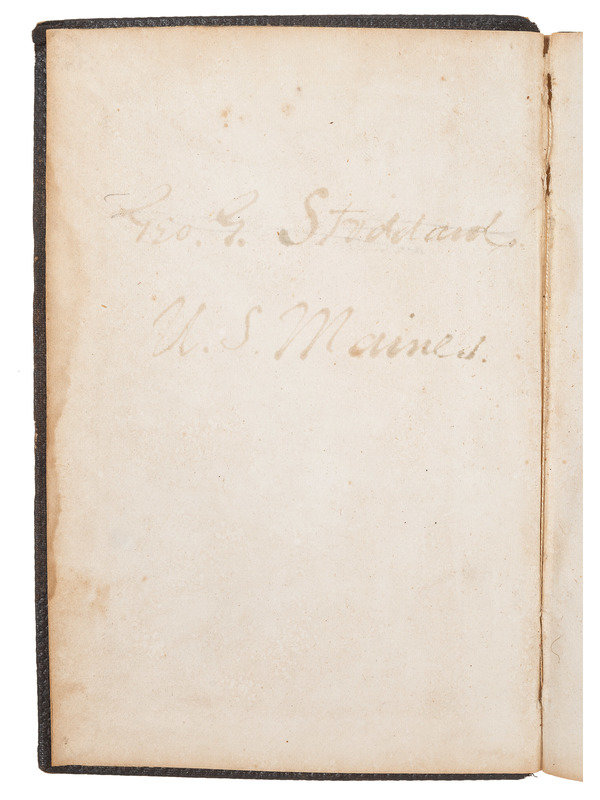 Geo. G. Stoddard.
U. S. Marines.